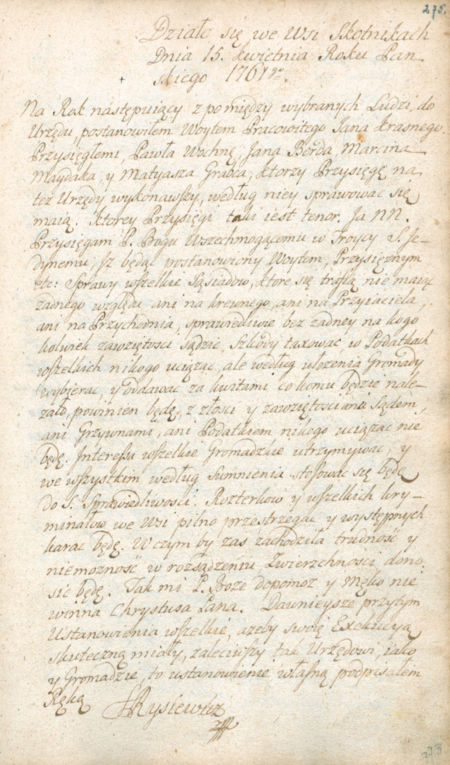 275.
Działo się we Wsi Skotnikach
Dnia 15. kwietnia Roku Pan
skiego 1761º.
Na Rok następuiący z pomiędzy wybranych Ludzi do
Urzędu postanowiłem Woytem Pracowitego Jana Krasnego
Przysięgłemi, Pawła Wochnę, Jana Borda, Marcina
Maydaka, y Matyasza Grabca, ktorzy Przysięgę na
też Urzędy wykonawszy, według niey sprawować się
maią. Ktorey Przysięgi taki iest tenor. Ja NN.
Przysięgam P. Bogu Wszechmogącemu w Troycy S. Je-
dynemu, Jż będąc postanowiony Woytem, Przysięznym
etc: Sprawy wszelkie Sąsiadow, ktore się trafią, nie maiąc
zadnego względu ani na krewnego, ani na Przyiaciela,
ani na Przychodnia, sprawiedliwie bez zadney na kogo
kolwiek zawziętosci sądzić, Szkody taxować w Podatkach
wszelkich nikogo uciążac, ale według ułozenia Gromady
wybierac, y oddawac za kwitami co komu będzie nale-
zało, powinien będę, z złosci y zawziętosci ani Sądem,
ani Grzywnami, ani Podatkiem nikogo uciązac nie
będę. Interessa wszelkie Gromadzkie utrzymywac, y
we wszystkim według Sumnienia stosowac się będę
do S. Sprawiedliwosci. Rozterkow y wszelkich kry-
minałow we Wsi pilno przestrzegac y występnych
karac będę. W czym by zas zachodziła trudność y
niemoznosc w rozsądzeniu, Zwierzchnosci dono-
sic będę. Tak mi P. Boze dopomoz y Męko nie
winna Chrystusa Pana. Dawnieysze przytym
Ustanowienia wszelkie, azeby swoię Exekucyą
skuteczną miały, zaleciwszy tak Urzędowi iako
y Gromadzie, to ustanowienie własną podpisałem
Ręką
JRysiewicz